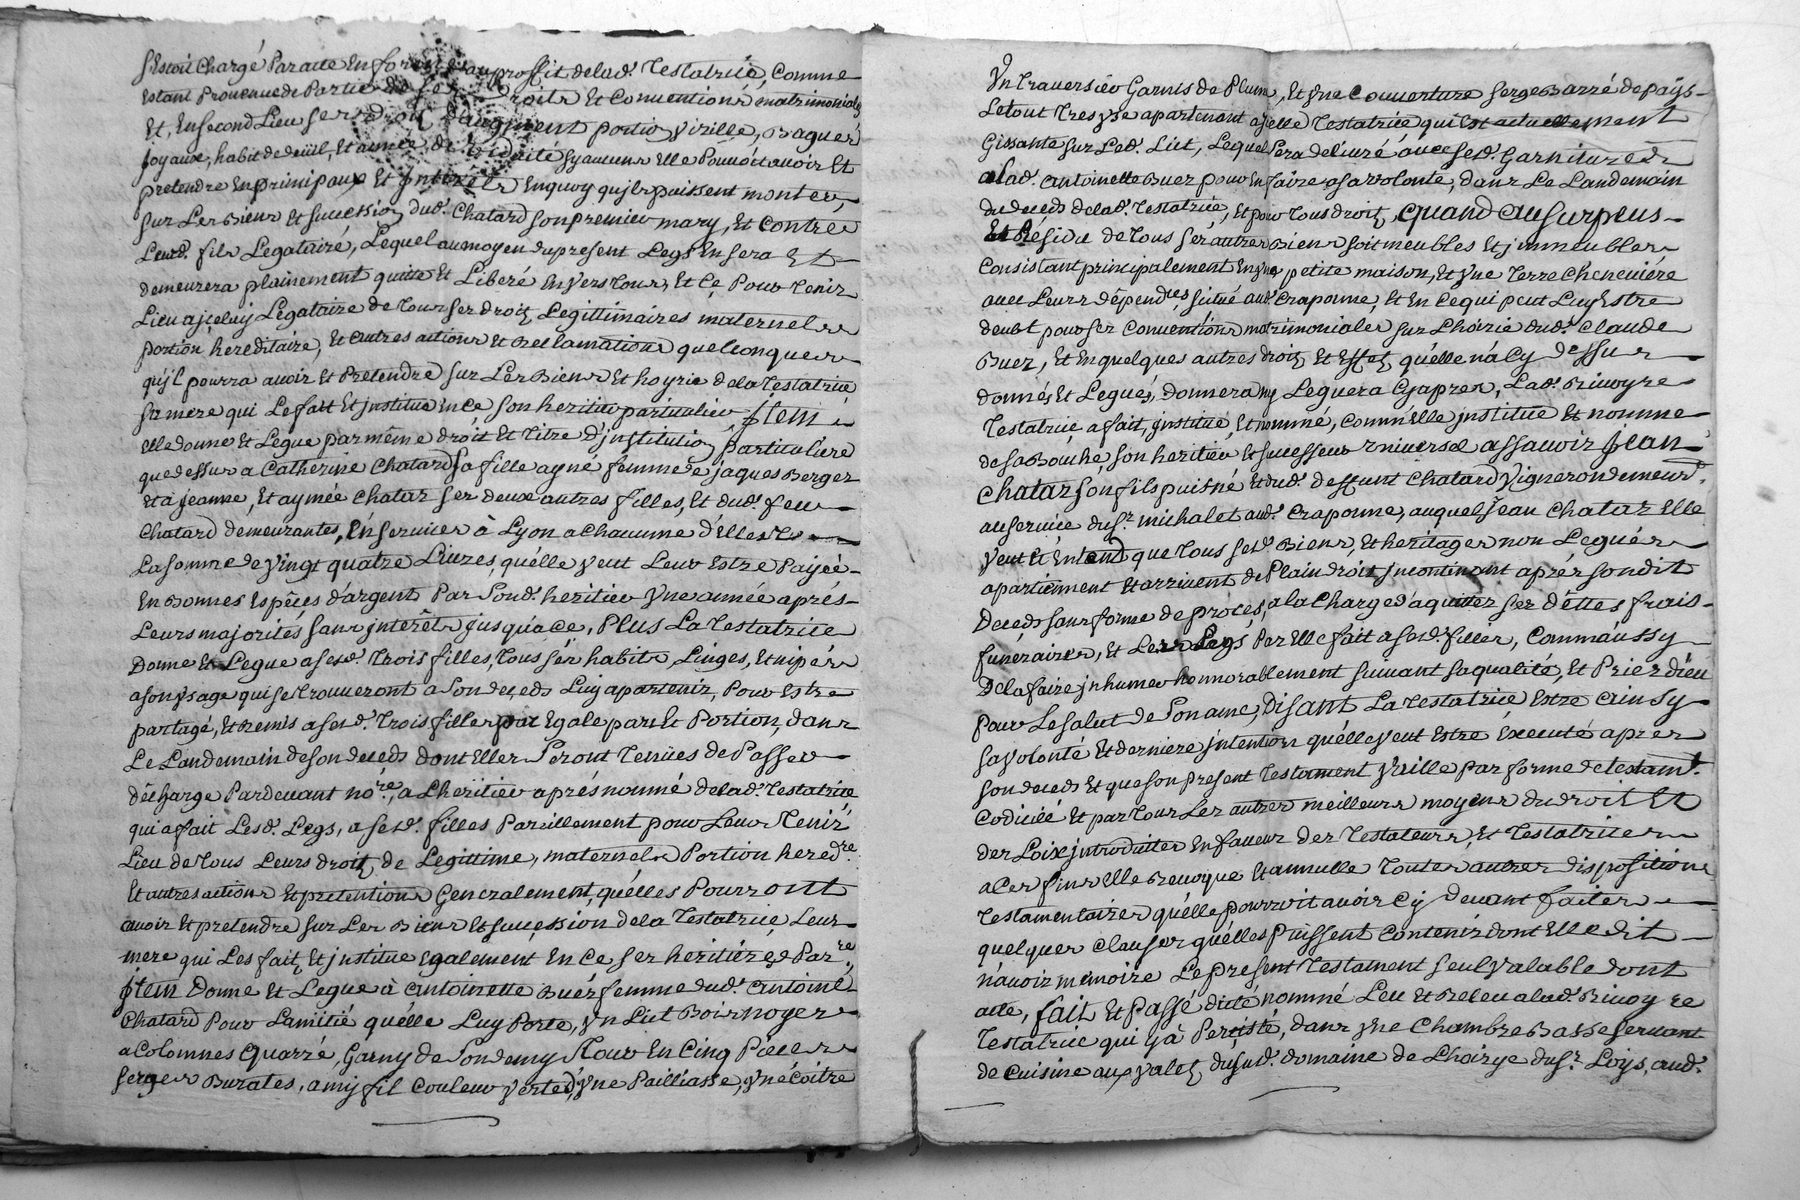 s'Estoit Chargé Par acte En forme au proffit de lad. Testatrice, Comme
Estant Provenue de Partie de ses Droits Et Conventions matrimoniales
Et, En second Lieu ses droits d'augment portion Virille, Bagues
Joyaux, habit de deüil, Et année de Viduité sy aucuns Elle Pouvoit avoir Et
pretendre En principaux Et Interets Enquoy qu'ils puissent monter,
sur Les Biens Et succession dud. Chatard son premier mary, Et Contre
Leurd. fils Legataire, Lequel au moyen du present Legs En sera Et
demeurera plainement quitte Et Liberé Envers Tous, Et Ce Pour Tenir
Lieu a iceluy Legataire de Tous ses droits Legittimaires maternels
portion hereditaire, Et autres actions Et Reclamations quelconques
qu'jl pourra avoir Et Pretendre sur Les Biens Et hoyrie de la Testatrice
sa mere qui Le fait Et jnstitue En Ce son heritier particulier, jtem
Elle donne Et Legue par même droit Et Titre d'jnstitution particuliere
que dessus a Catherine Chatard sa fille aÿné femme de jaques Berger
Et a jeanne, Et aymée Chatar ses deux autres filles, Et dud. feu
Chatard demeurantes, En service à Lyon a Chacunne d'Elles
La somme de Vingt quatre Livres, qu'elle veut Leur Estre Payée
En Bonnes Espèces d'argent Par Sond. heritier Vne année après
Leurs majorités sans jnterêts jusqu'a ce, PLUS La Testatrice
Donne Et Legue a sesd. Trois filles, Tous ses habits, Linges, Et nipes
a son Vsage qui se Trouveront a Son deceds Luy apartenir, Pour Estre
partagé, Et Remis a sesd. Trois filles par Egale part Et Portion, dans
Le Landemain de son deceds dont Elles Seront Tenües de Passer
décharge Pardevant nore, a L'heritier après nommé de lad. Testatrice
qui a fait Lesd. Legs, a sesd. filles Pareillement pour Leur Tenir
Lieu de Tous Leurs droits de Legittime, maternels Portion heredre
Et autres actions Et pretentions Generalement, qu'elles Pourront
avoir Et pretendre sur Les Biens Et succession de la Testatrice Leur
mere qui Les fait, Et jnstitue Egalement En Ce ses heritieres Parre
jtem Donne Et Legue à antoinette Buer femme dud. antoine
Chatard Pour L'amitié qu'elle Luy Porte, Vn Lict Bois noyer
a Colomnes Quarré, Garny de Son demy Tour En Cinq Pieces
serges Burates, a my fil Couleur Verte, Vne Pailliasse, Vne Coitre
Vn Traversier Garnis de Plume, Et Vne Couverture serge Barré de païs
Le tout Tres Vsé apartenant a jelle Testatrice qui Est actuellement
Gissante sur Led. Lict, Lequel Sera delivré avec sesd. Garnitures
a lad. antoinette Buer pour En faire a sa volonté, dans Le Landemain
du deceds de lad. Testatrice, Et pour Tous droits, Quand au surplus
Et Residu de Tous ses autres Biens soit meubles Et jmmeubles
Consistant principalement En Vne petite maison, Et Vne Terre Cheneviére
avec Leurs dépendces, situé aud. Craponne, Et En Ce qui peut Luy Estre
deubt pour ses Conventions matrimoniales sur L'hoirie dud. Claude
Buer, Et En quelques autres droits Et Effets qu'elle n'a Cy dessus
donnés Et Legués, donnera ny Leguera Cy apres, Lad. Rivoyre
Testatrice a fait, jnstitué, Et nommé, Comm'elle jnstitue Et nomme
de sa Bouche, son heritier Et successeur Vniversel assavoir jean
Chatar son fils puisné Et dud. deffunt Chatard Vigneron demeurt
au service du sr michalet aud. Craponne, auquel jean Chatar Elle
Veut Et Entend que Tous sesd. Biens, Et heritages non Legués
apartiennent Et arrivent de Plain droit jncontinant aprés sondit
Deceds sans forme de procès, a la Charge d'aquitter ses dêttes frais
funéraires, et Les Legs Par Elle fait a sesd. filles, Comm'aussy
De la faire jnhumer honnorablement suivant sa qualité, Et Prier Dieu
pour Le salut de Son ame, Disant La Testatrice Estre ainsy
sa volonté Et derniere jntention qu'elle veut Estre Executé aprés
son deceds Et que son present Testament Vaille par forme de testamt
Codicile Et par Tous Les autres meilleurs moyens du droit Et
des Loix jntroduittes En faveur des Testateurs, Et Testatrices
a Ces fins Elle Revoque Et annulle Toutes autres dispositions
Testamentaires qu'elle pourroit avoir Cy Devant faites
quelques Clauses qu'elles Puissent Contenir dont Elle dit
n'avoir mémoire Le present Testament seul Valable dont
acte, fait Et Passé dicté nommé Leu Et Releu a lad. Rivoyre
Testatrice qui y a Persisté, dans Vne Chambre Basse servant
de Cuisine aux Valets du susd. domaine de L'hoirye du sr. Loys, aud.